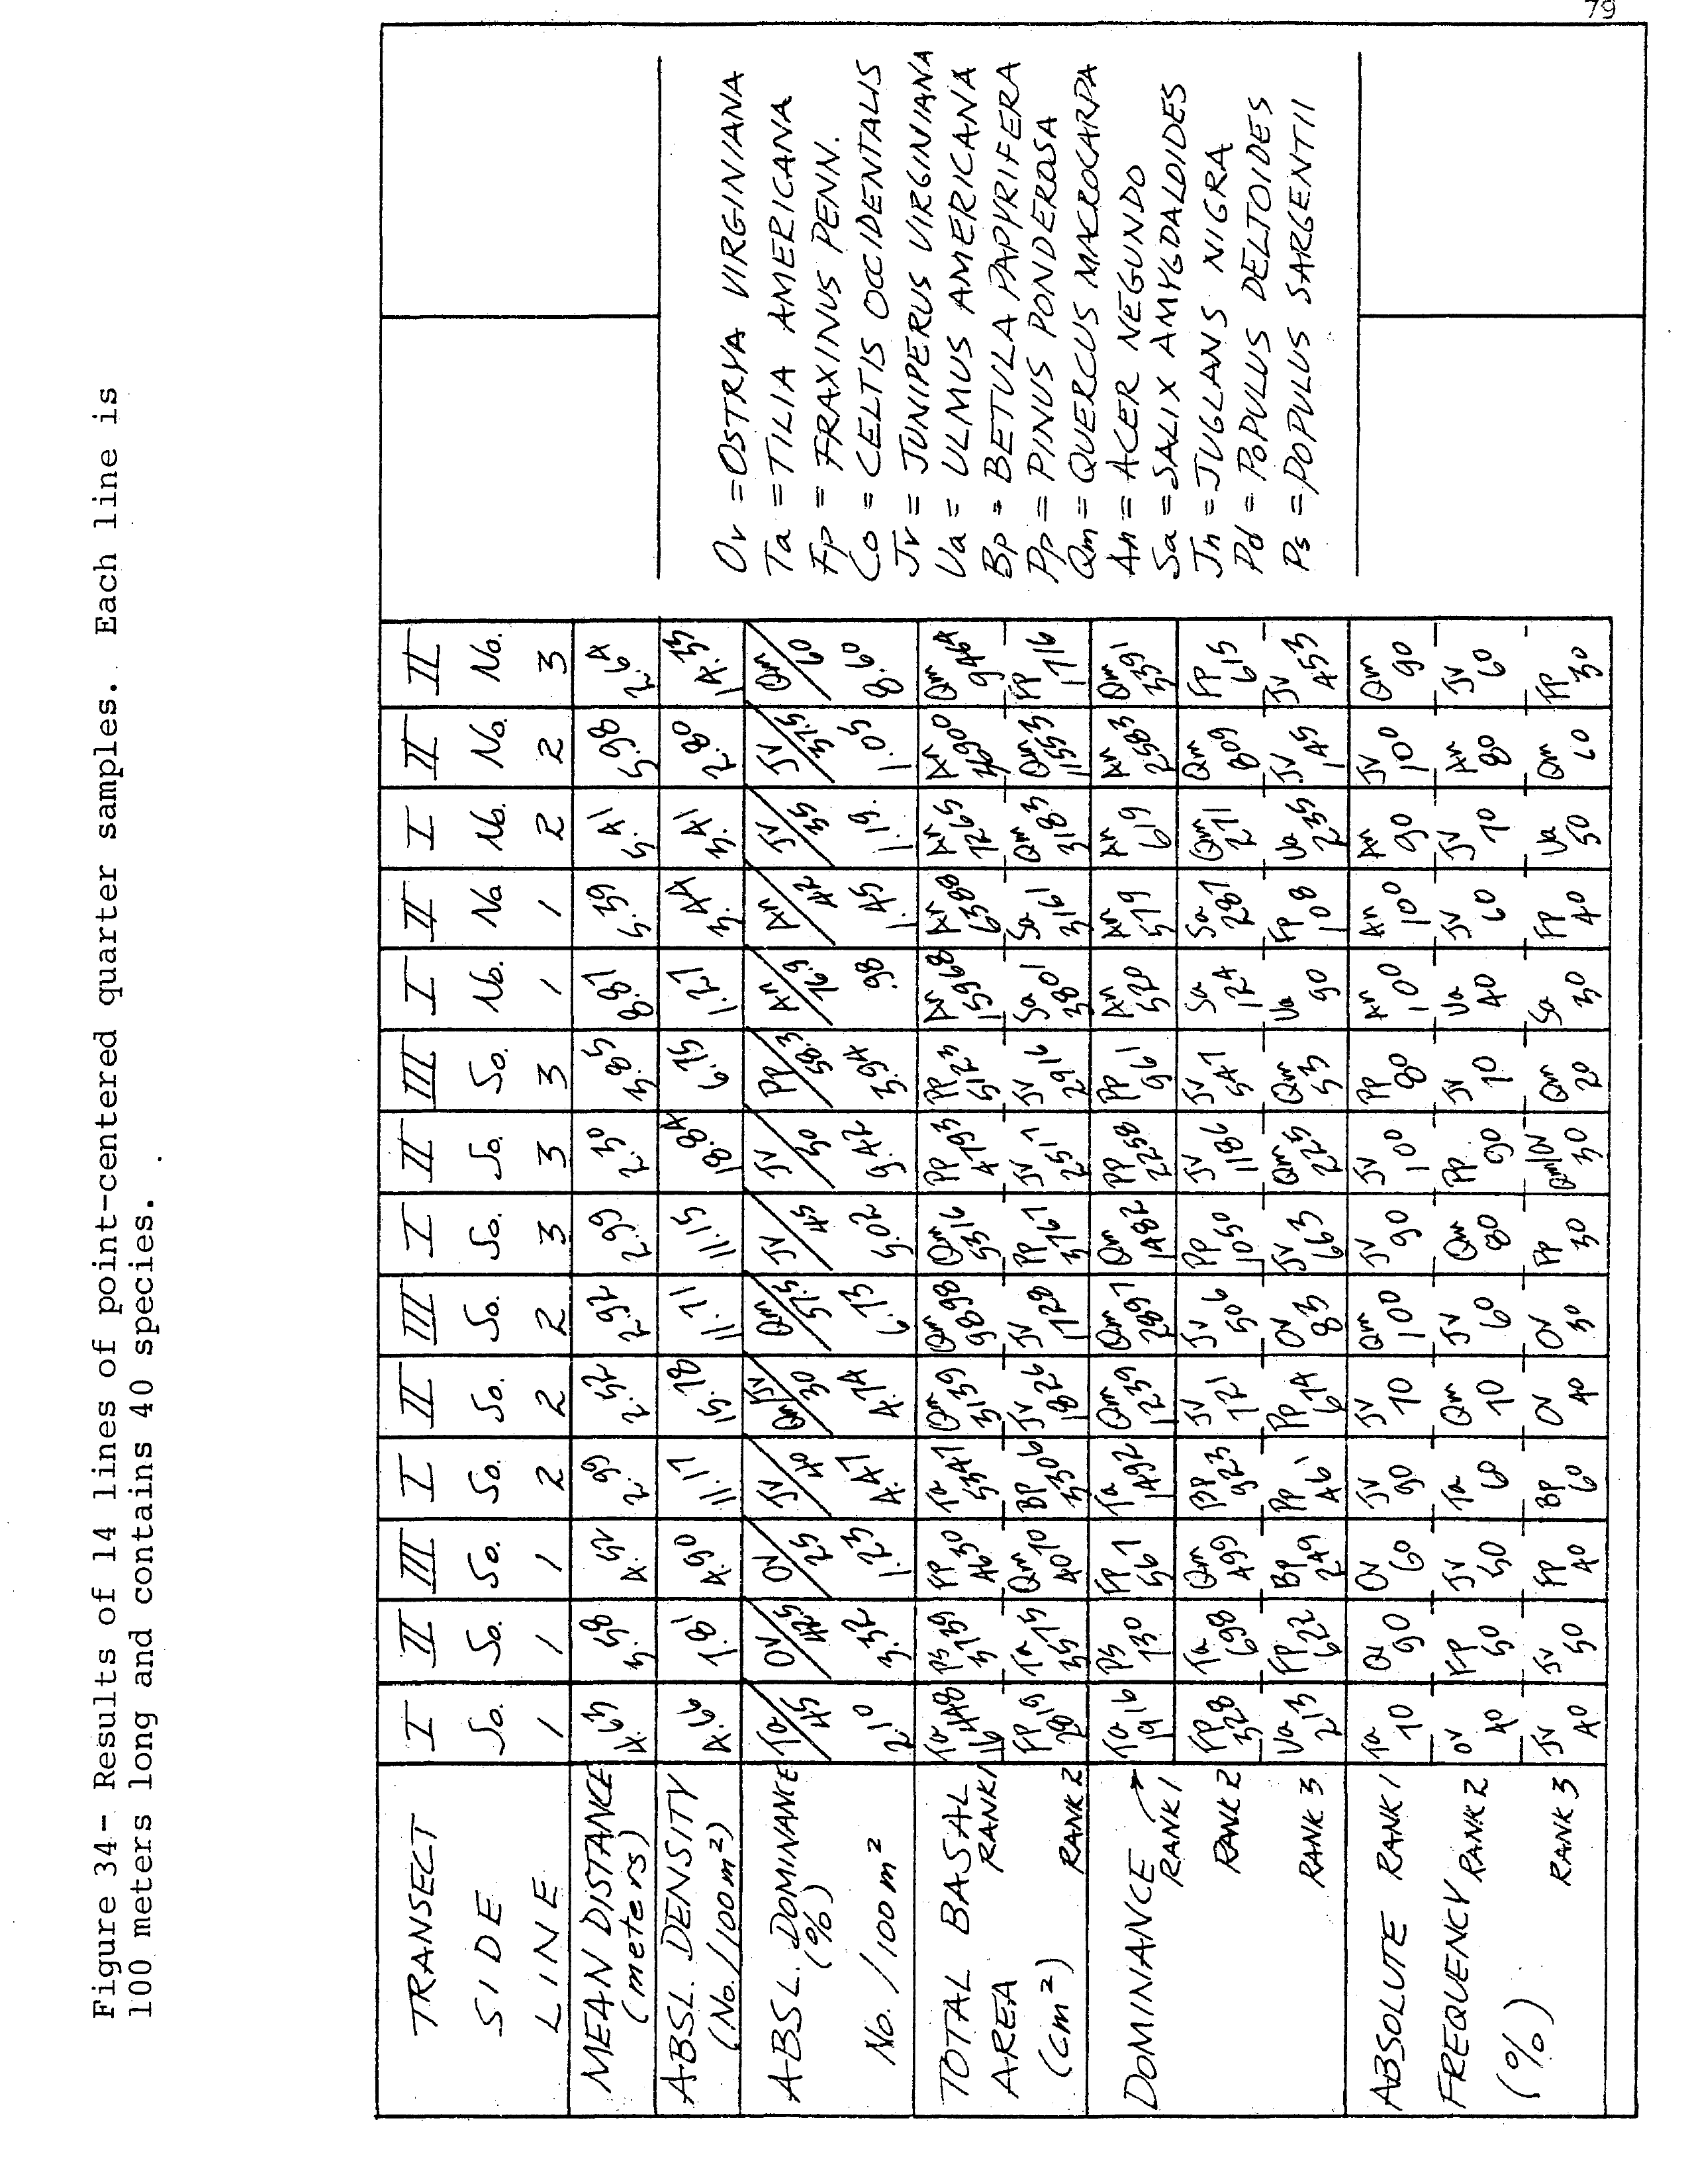 Figure 34- Results of 14 lines of point-centered quarter samples. Each line is
100 meters long and contains 40 species.
TRANSECT I II III I II III I II III I II I II II
SIDE So. So. So. So. So. So. So. So. So. No. No No. No. No.
LINE 1 1 1 2 2 2 3 3 3 1 1 2 2 3
MEAN DISTANCE (meters) 4.63 3.58 4.52 2.99 2.52 2.92 2.99 2.30 3.85 8.87 5.39 5.41 5.98 2.64
ABSL. DENSITY (No./100m²) 4.66 7.81 4.90 11.17 15.78 11.71 11.15 18.84 6.75 1.27 3.44 3.41 2.80 14.33
ABSL. DOMINANCE (%) Ta/45 Ov/42.5 Ov/25 Jv/40 Qm Jv/30 Qm/57.5 Jv/45 Jv/50 Pp/58.3 An/76.9 An/42 Jv/35 Jv/37.5 Qm/60
No./100m² 2.10 3.32 1.23 4.47 4.74 6.73 5.02 9.42 3.94 .98 1.45 1.19 1.05 8.60
TOTAL BASAL AREA (cm²) RANK 1 Ta 16448 Ps 3739 Fp 4630 Ta 5347 Qm 3139 Qm 9898 Qm 5316 Pp 4793 Pp 5123 An 15968 An 6388 An 7265 An Qm 9464
RANK 2 Fp 2819 Ta 3575 Qm 4070 Bp 3306 Jv 1826 Jv 1728 Pp 3767 Jv 2517 Jv 2916 Sa 3801 Sa 3161 Qm 3183 Qm 1553 Fp 1716
DOMINANCE RANK 1 Ta 1916 Ps 730 Fp 567 Ta 1492 Qm 1239 Qm 2897 Qm 1482 Pp 2258 Pp 961 An 520 An 579 An 619 An 2583 Qm 3391
RANK 2 Fp 328 Ta 698 Qm 499 Bp 923 Jv 721 Jv 506 Pp 1050 Jv 1186 Jv 547 Sa 124 Sa 287 Qm 271 Qm 809 Fp 615
RANK 3 Ua 213 Fp 622 Bp 249 Pp 461 Pp 674 Ov 83 Jv 663 Qm 225 Qm 53 Ua 90 Fp 108 Ua 235 Jv 145 Jv 453
ABSOLUTE FREQUENCY (%) RANK 1 Ta 70 Ov 90 Ov 60 Jv 90 Jv 70 Qm 100 Jv 90 Jv 100 Pp 80 An 100 An 100 An 90 Jv 100 Qm 90
RANK 2 Ov 40 Fp 50 Jv 50 Ta 60 Qm 70 Jv 60 Qm 80 Pp 90 Jv 70 Ua 40 Jv 60 Jv 70 An 80 Jv 60
RANK 3 Jv 40 Jv 50 Fp 40 Bp 60 Ov 40 Ov 30 Pp 30 Qm/Ov 30 Qm 20 Sa 30 Fp 40 Ua 50 Qm 60 Fp 30
Ov = OSTRYA VIRGINIANA
Ta = TILIA AMERICANA
Fp = FRAXINUS PENN.
Co = CELTIS OCCIDENTALIS
Jv = JUNIPERUS VIRGINIANA
Ua = ULMUS AMERICANA
Bp = BETULA PAPYRIFERA
Pp = PINUS PONDEROSA
Qm = QUERCUS MACROCARPA
An = ACER NEGUNDO
Sa = SALIX AMYGDALOIDES
Jn = JUGLANS NIGRA
Pd = POPULUS DELTOIDES
Ps = POPULUS SARGENTII
79